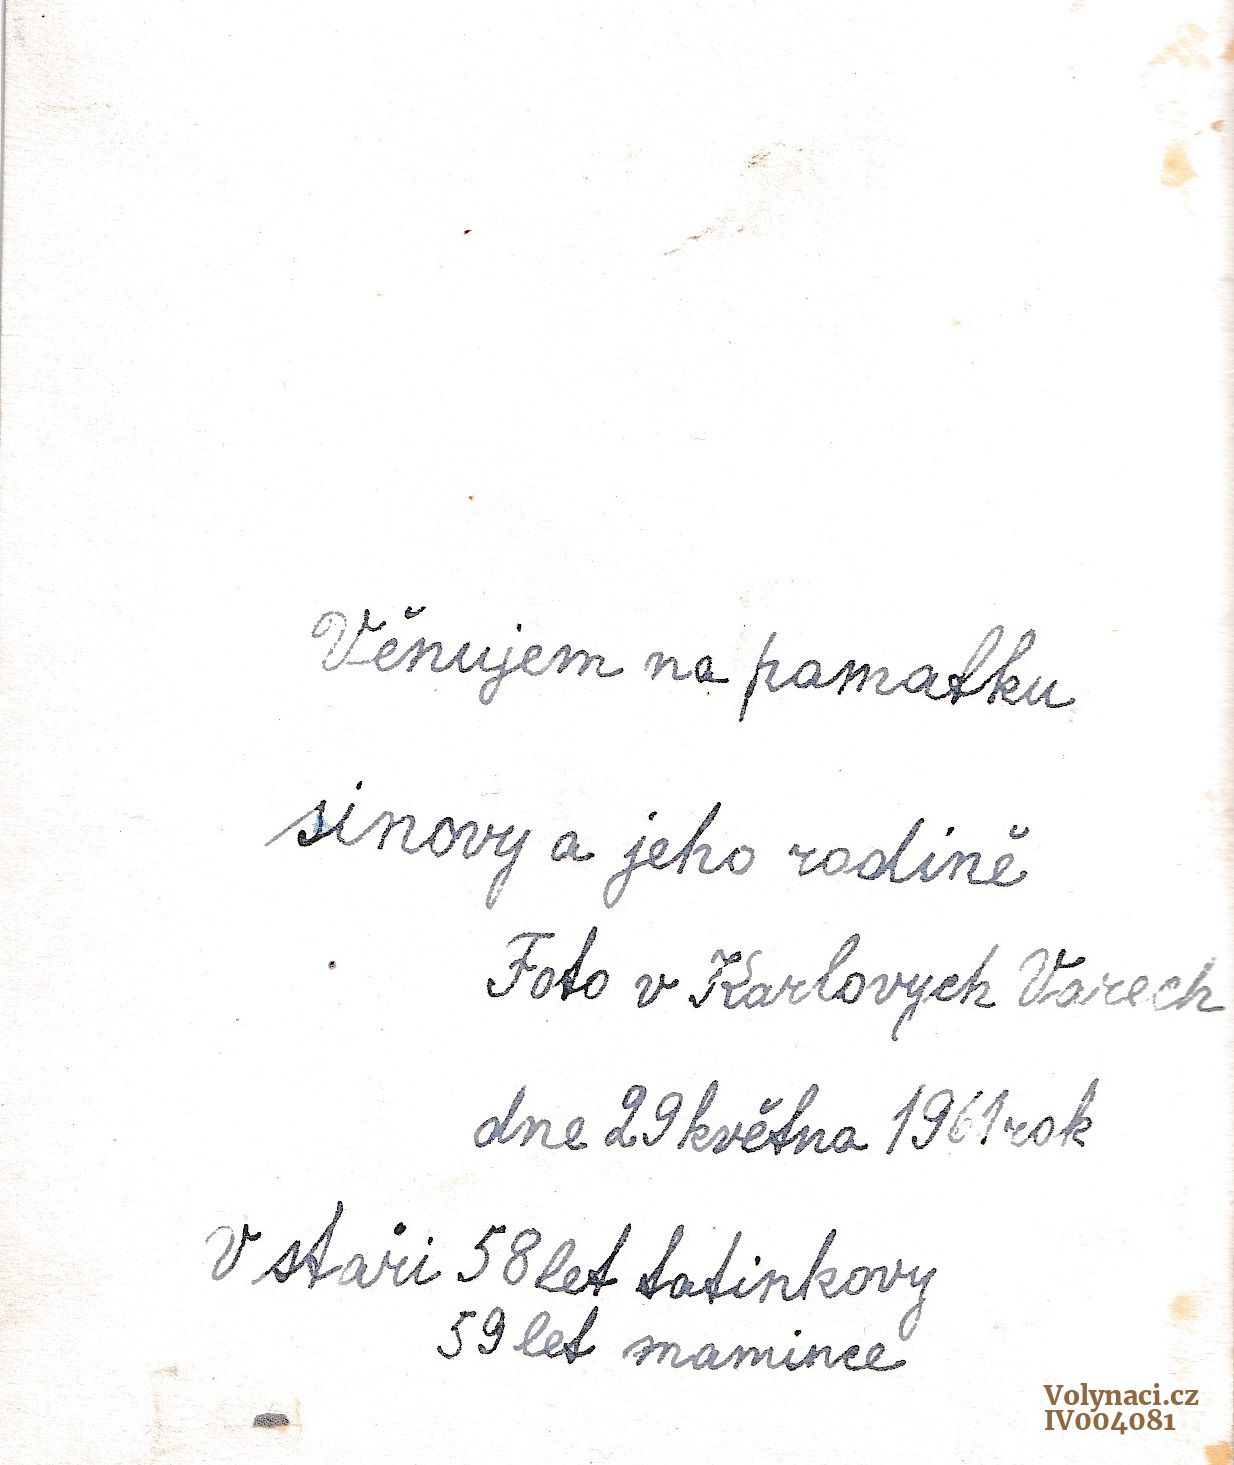 Věnujem na pamatku
sinovy a jeho rodině
Foto v Karlovych Varech
dne 29 května 1961 rok
V staři 58 let tatinkovy
59 let mamince
Volynaci.cz
IV004081